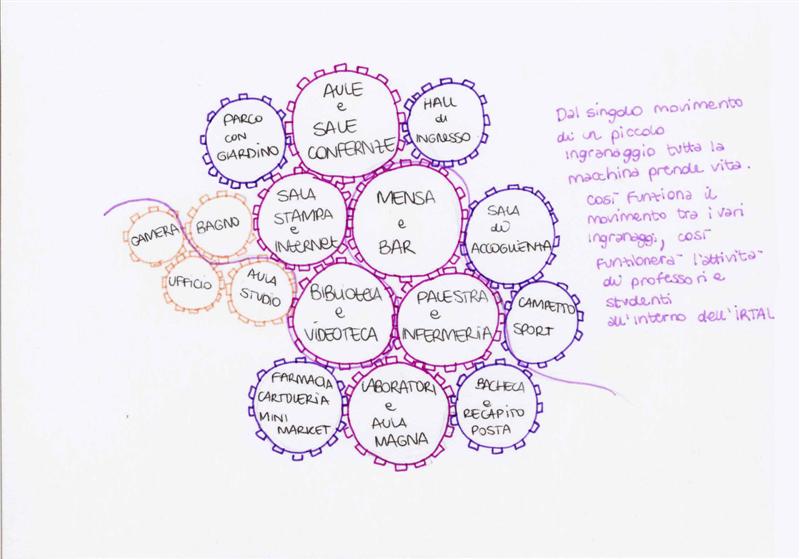 AULE
e
SALE
CONFERNZE
HALL
di
INGRESSO
PARCO
CON
GIARDINO
SALA
STAMPA
e
INTERNET
MENSA
e
BAR
SALA
di
ACCOGLIENZA
CAMERA
BAGNO
UFFICIO
AULA
STUDIO
BIBLIOTECA
e
VIDEOTECA
PALESTRA
e
INFERMERIA
CAMPETTO
SPORT
FARMACIA
CARTOLERIA
MINI
MARKET
LABORATORI
e
AULA
MAGNA
BACHECA
e
RECAPITO
POSTA
Dal singolo movimento
di un piccolo
ingranaggio tutta la
macchina prende vita.
Così funziona il
movimento tra i vari
ingranaggi, così
funzionerà l'attività
di professori e
studenti
all'interno dell'IRTAL